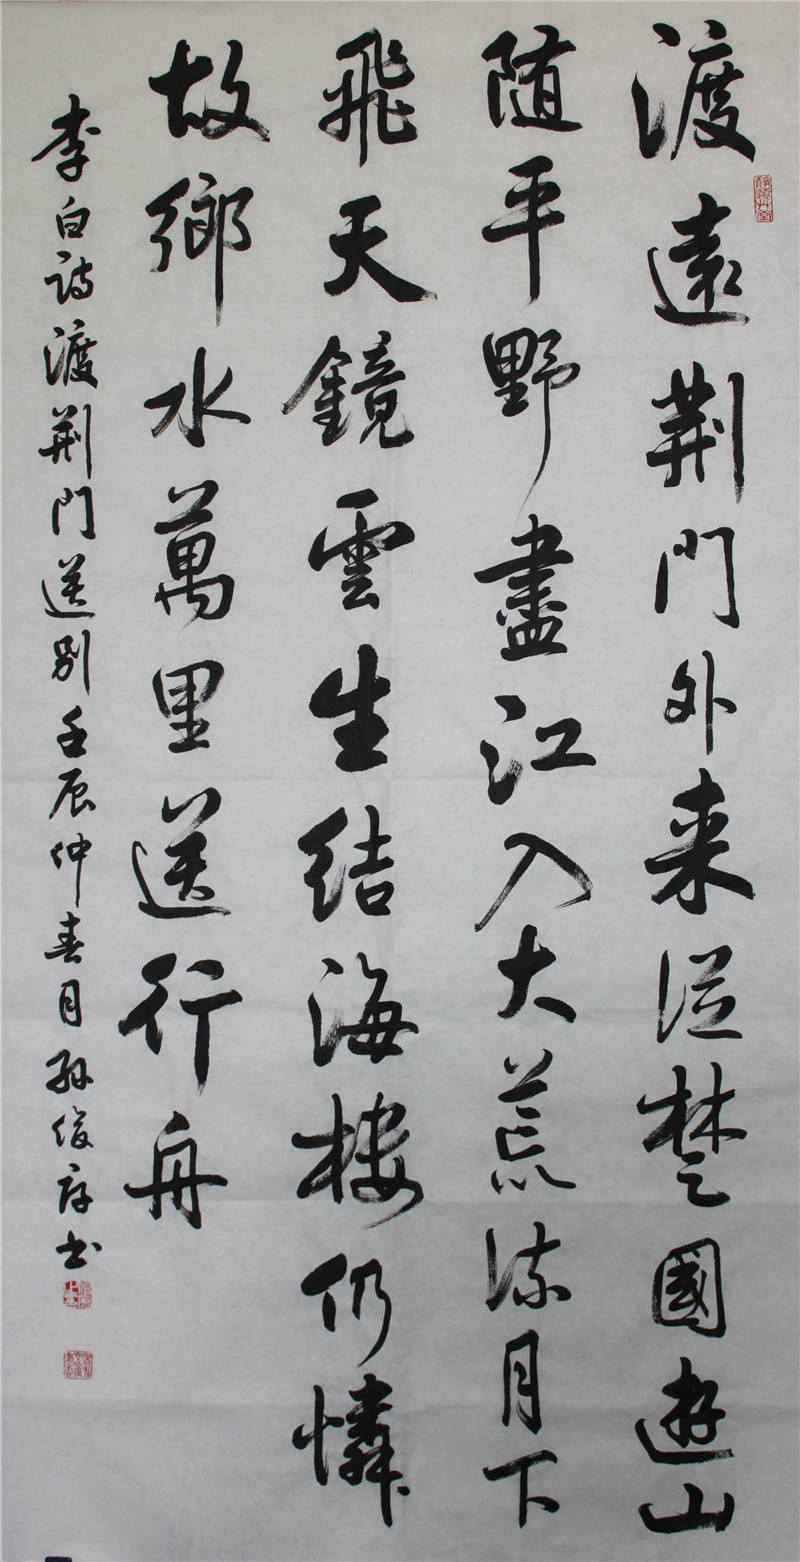 渡遠荆門外来從楚國遊山
随平野盡江入大荒流月下
飛天鏡雲生结海樓仍憐
故鄉水萬里送行舟
李白詩渡荆門送别壬辰仲春月孫俊存书